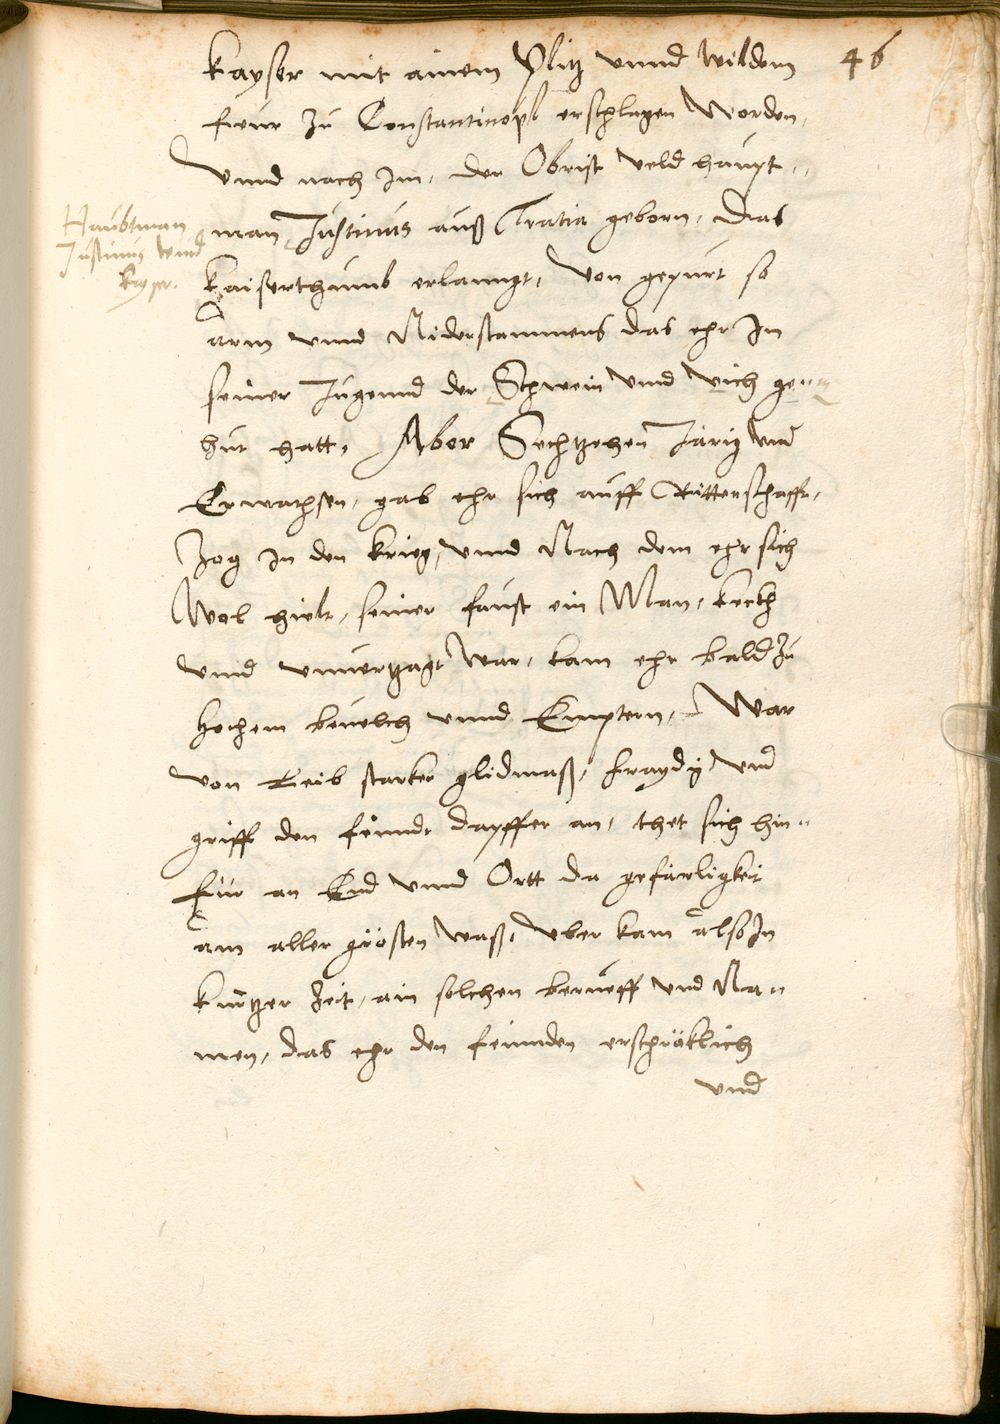 46
Kayser mit ainem Plitz unnd wildem
feur zu Constantinopl erschlagen worden,
Unnd nach Im, der Obrist veld haupt-,,
man Justinus auß Tratia geborn, das
Haubtman
Justinus wird
Kayser.
Kaiserthumb erlanngt, von gepurt so
arm unnd Niderstammens das ehr In
seiner Jugennd der Schwein unnd viech ge,,
hüt hatt, Aber Sechtzehen Järig und
Erwachsen, gab ehr sich auff Ritterschafft,
Zog In den Krieg, unnd Nach dem ehr sich
Wol hielt, seiner faust ein Man, keckh
unnd unuerzagt war, kam ehr bald zu
hochem beuelch unnd Emptern, War
von Leib starker glidmaß, fraydig und
griff den feinndt dapffer an, thet sich hin,,
für an End unnd Ortt da gefärligkeit
am aller grösten waß, Uber kam also In
kurtzer Zeit, ain solchen berueff und Na,,
men, das ehr den feinnden erschröklich
und